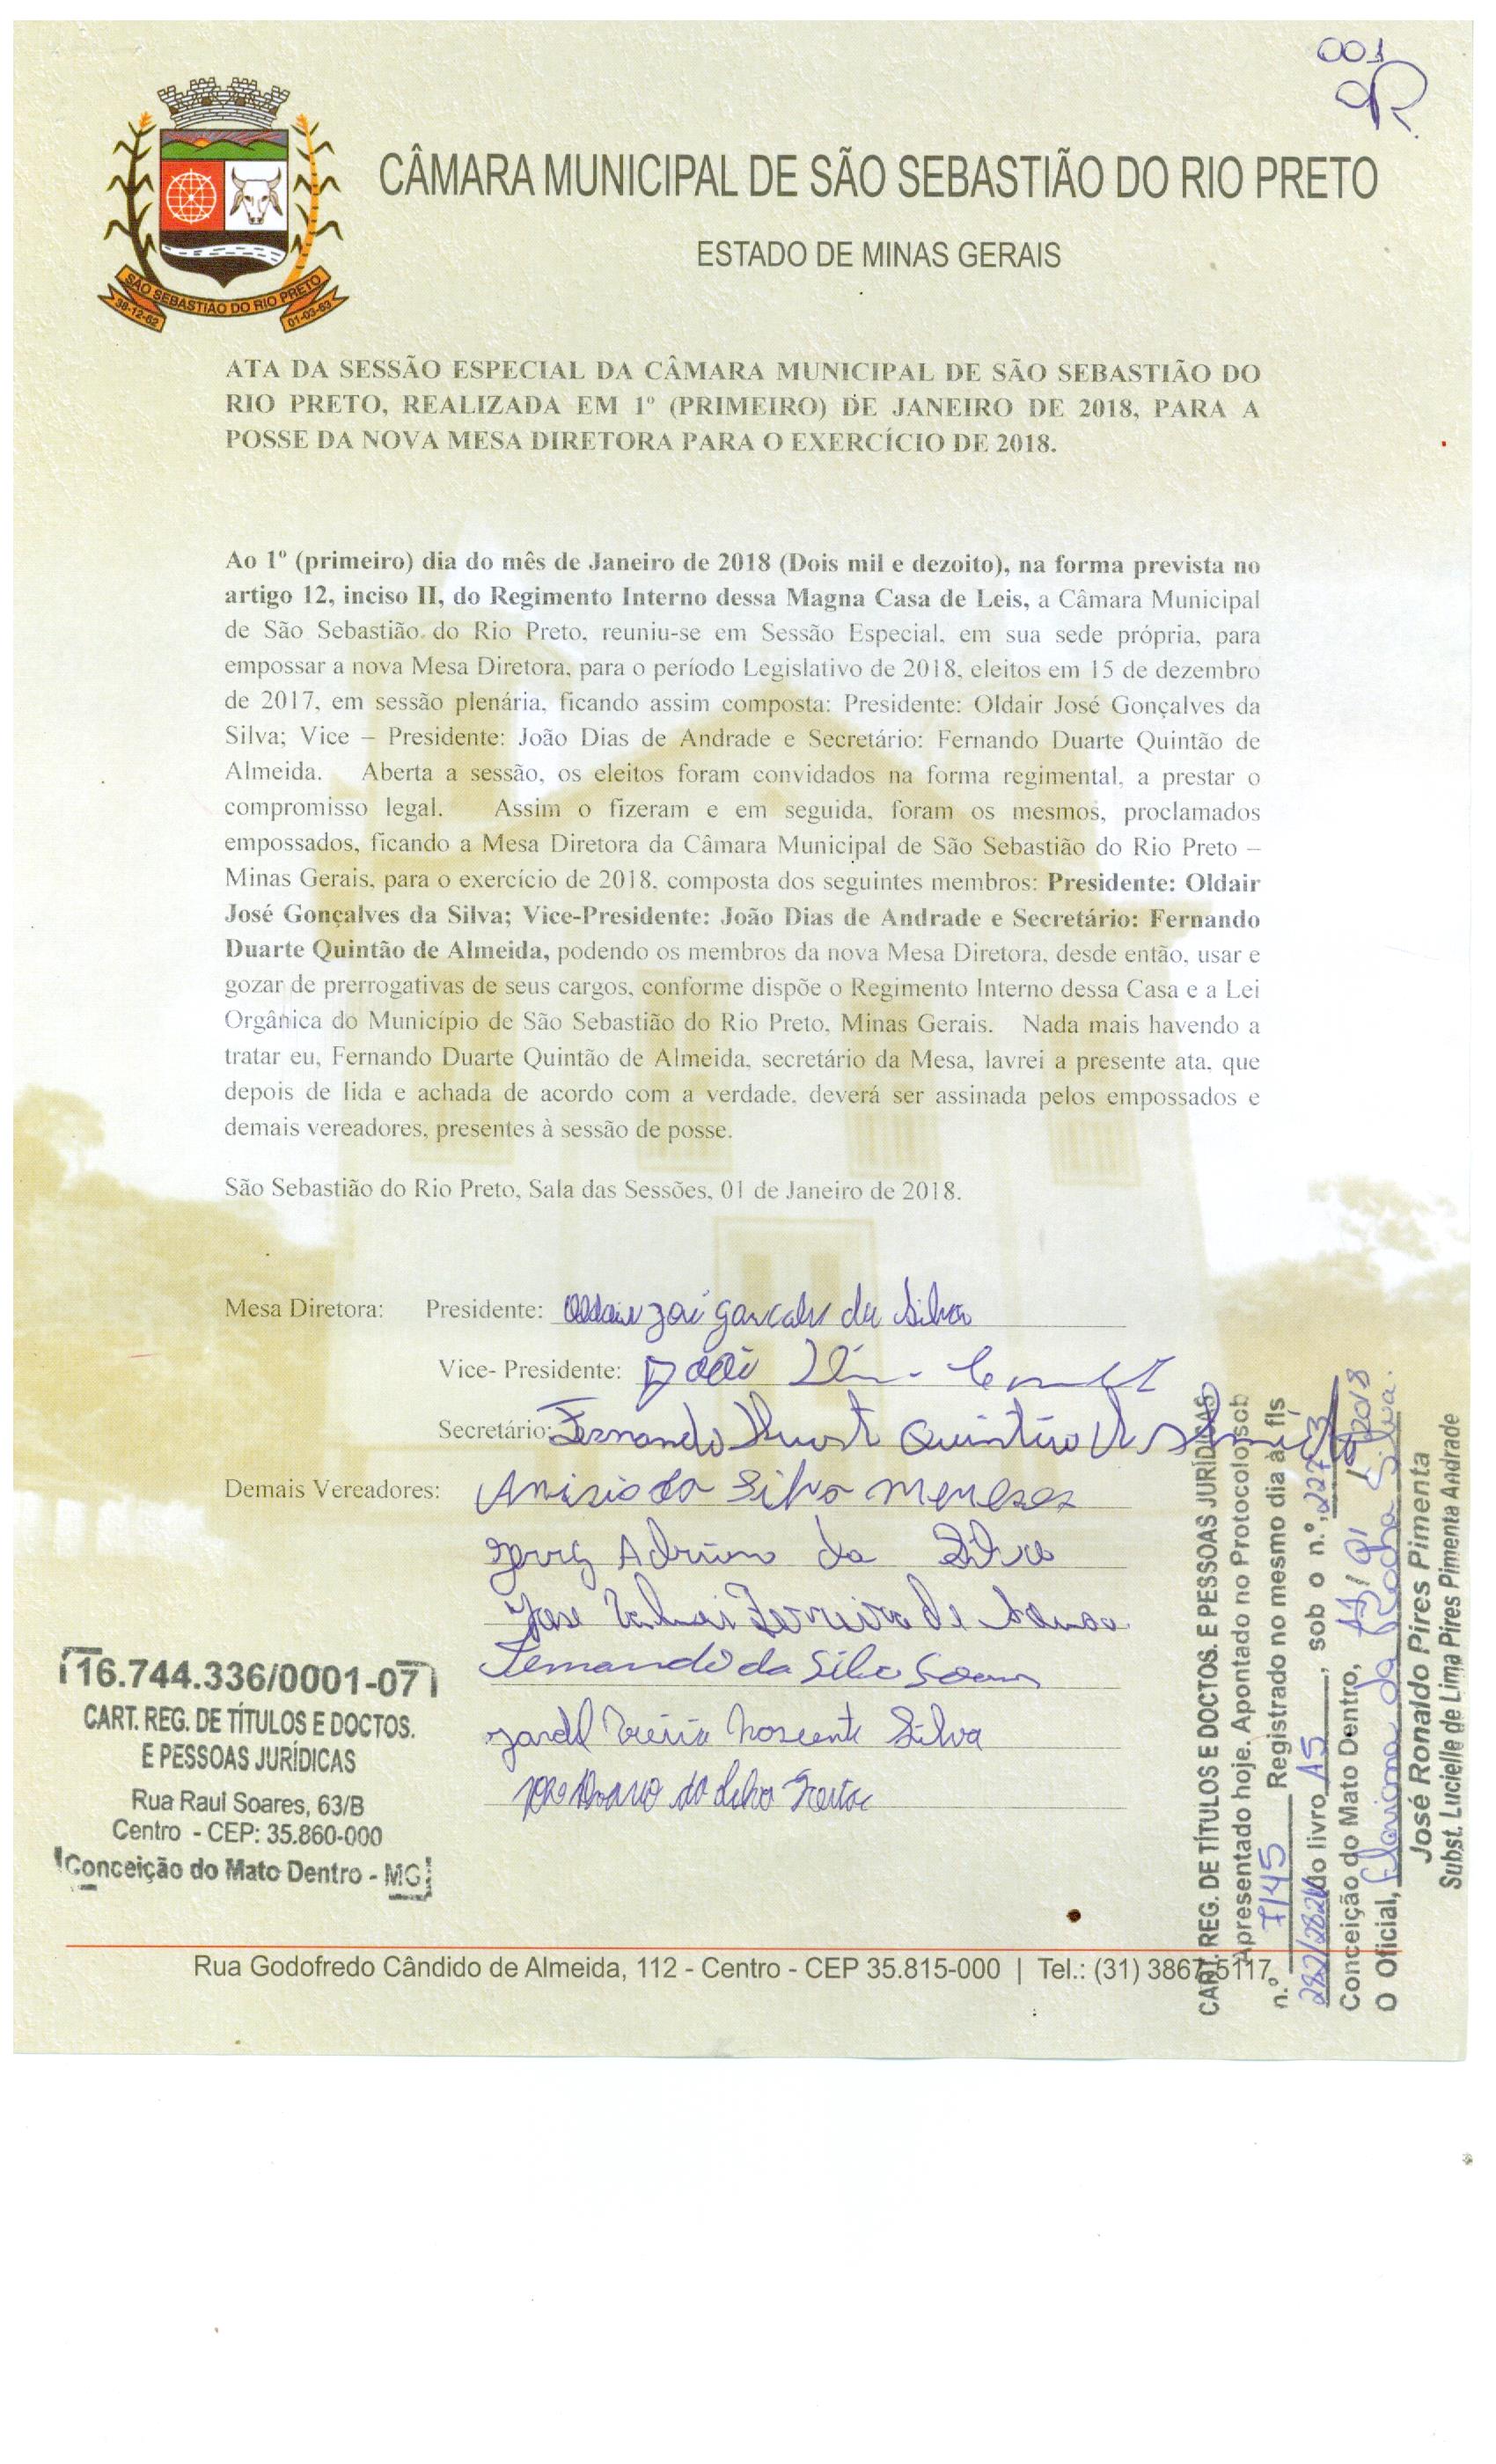 001
CÂMARA MUNICIPAL DE SÃO SEBASTIÃO DO RIO PRETO
ESTADO DE MINAS GERAIS
SÃO SEBASTIÃO DO RIO PRETO
38-12-62
01-03-63
ATA DA SESSÃO ESPECIAL DA CÂMARA MUNICIPAL DE SÃO SEBASTIÃO DO
RIO PRETO, REALIZADA EM 1º (PRIMEIRO) DE JANEIRO DE 2018, PARA A
POSSE DA NOVA MESA DIRETORA PARA O EXERCÍCIO DE 2018.
Ao 1º (primeiro) dia do mês de Janeiro de 2018 (Dois mil e dezoito), na forma prevista no
artigo 12, inciso II, do Regimento Interno dessa Magna Casa de Leis, a Câmara Municipal
de São Sebastião do Rio Preto, reuniu-se em Sessão Especial, em sua sede própria, para
empossar a nova Mesa Diretora, para o período Legislativo de 2018, eleitos em 15 de dezembro
de 2017, em sessão plenária, ficando assim composta: Presidente: Oldair José Gonçalves da
Silva; Vice – Presidente: João Dias de Andrade e Secretário: Fernando Duarte Quintão de
Almeida. Aberta a sessão, os eleitos foram convidados na forma regimental, a prestar o
compromisso legal. Assim o fizeram e em seguida, foram os mesmos, proclamados
empossados, ficando a Mesa Diretora da Câmara Municipal de São Sebastião do Rio Preto –
Minas Gerais, para o exercício de 2018, composta dos seguintes membros: Presidente: Oldair
José Gonçalves da Silva; Vice-Presidente: João Dias de Andrade e Secretário: Fernando
Duarte Quintão de Almeida, podendo os membros da nova Mesa Diretora, desde então, usar e
gozar de prerrogativas de seus cargos, conforme dispõe o Regimento Interno dessa Casa e a Lei
Orgânica do Município de São Sebastião do Rio Preto, Minas Gerais. Nada mais havendo a
tratar eu, Fernando Duarte Quintão de Almeida, secretário da Mesa, lavrei a presente ata, que
depois de lida e achada de acordo com a verdade, deverá ser assinada pelos empossados e
demais vereadores, presentes à sessão de posse.
São Sebastião do Rio Preto, Sala das Sessões, 01 de Janeiro de 2018.
Mesa Diretora: Presidente: da Silva
Vice- Presidente:
Secretário: Fernando Quintão
Demais Vereadores: Anisio da Silva Meneses
Adriano da Silva
Jose Ferreira de
Fernando da Silva
Silva
da Silva
16.744.336/0001-07
CART. REG. DE TÍTULOS E DOCTOS.
E PESSOAS JURÍDICAS
Rua Raul Soares, 63/B
Centro - CEP: 35.860-000
Conceição do Mato Dentro - MG
CART. REG. DE TÍTULOS E DOCTOS. E PESSOAS JURÍDICAS
Apresentado hoje. Apontado no Protocolo sob
n.º 7145 Registrado no mesmo dia à fls
282/282V do livro A5, sob o n.º, 2273
Conceição do Mato Dentro, 2018
O Oficial, da Rocha Silva.
José Ronaldo Pires Pimenta
Subst. Lucielle de Lima Pires Pimenta Andrade
Rua Godofredo Cândido de Almeida, 112 - Centro - CEP 35.815-000 | Tel.: (31) 3867-5117